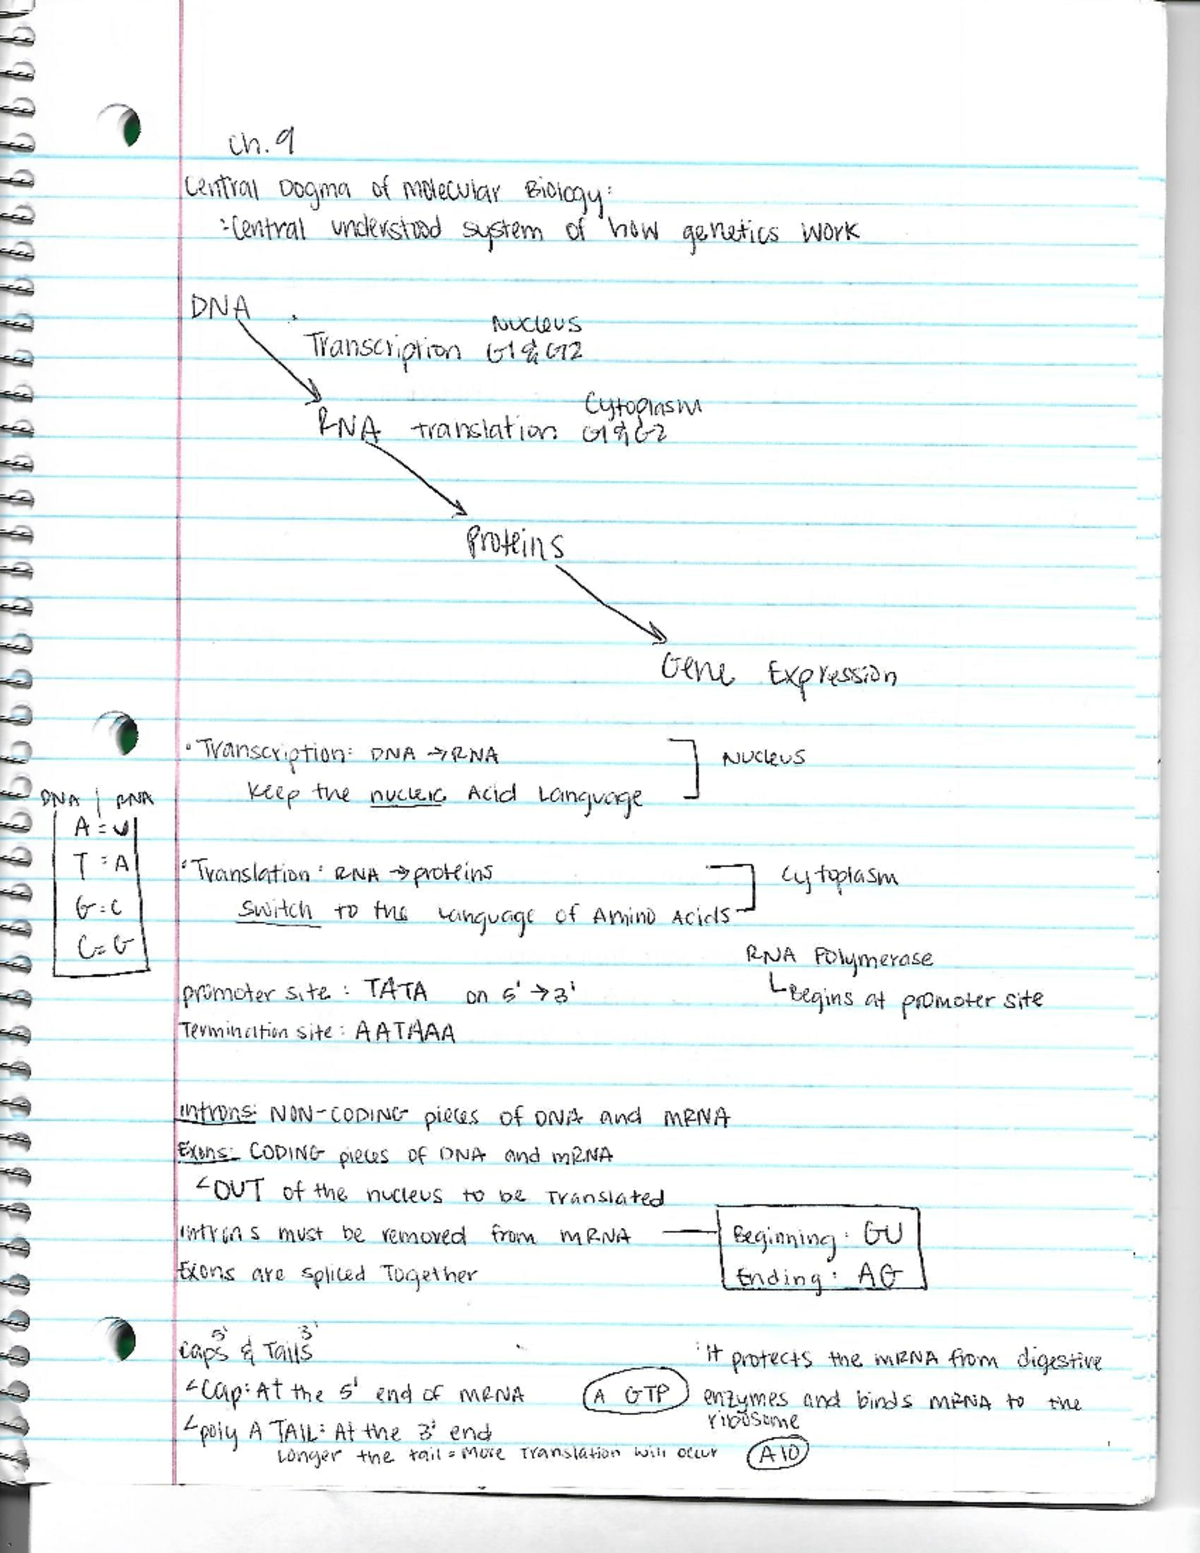 Ch. 9
Central Dogma of Molecular Biology:
:Central understood system of how genetics work
DNA
Nucleus
Transcription G1 & G2
Cytoplasm
RNA translation G1 & G2
Proteins
Gene Expression
• Transcription: DNA → RNA
Nucleus
Keep the nucleic Acid Language
DNA | RNA
A = U
T = A
G = C
C = G
• Translation: RNA → proteins
Cytoplasm
Switch to the Language of Amino Acids
RNA Polymerase
Begins at promoter site
promoter site: TATA on 5' → 3'
Termination site: AATAAA
Introns: NON-CODING pieces of DNA and mRNA
Exons: CODING pieces of DNA and mRNA
OUT of the nucleus to be Translated
introns must be removed from mRNA
Beginning: GU
Ending: AG
Exons are spliced Together
5' 3'
Caps & Tails
Cap: At the 5' end of mRNA
A GTP
: it protects the mRNA from digestive
enzymes and binds mRNA to the
ribosome
poly A TAIL: At the 3' end
Longer the tail = More Translation will occur
A10